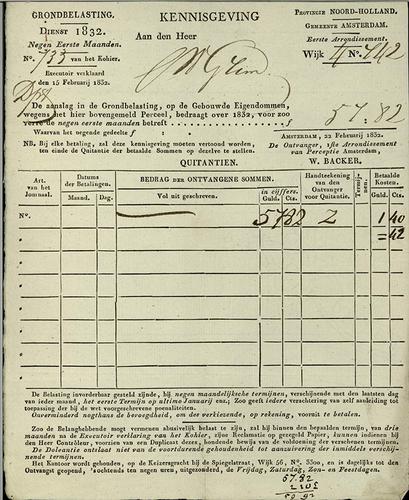 GRONDBELASTING.
DIENST 1832.
Negen Eerste Maanden.
No. 733 van het Kohier.
Executoir verklaard
den 15 Februarij 1832.
KENNISGEVING
Aan den Heer
PROVINCIE NOORD-HOLLAND.
GEMEENTE AMSTERDAM.
Eerste Arrondissement.
WIJK
De aanslag in de Grondbelasting, op de Gebouwde Eigendommen,
wegens het hier bovengemeld Perceel, bedraagt over 1832, voor zoo
verre de negen eerste maanden betreft f 57.82
Waarvan het negende gedeelte f
NB. Bij elke betaling, zal deze kennisgeving moeten vertoond worden,
ten einde de Quitantie der betaalde Sommen op dezelve te stellen.
AMSTERDAM, 22 Februarij 1832.
De Ontvanger, 1ste Arrondissement
van Perceptie Amsterdam,
W. BACKER.
QUITANTIEN.
Art. van het Journaal.
Datums der Betalingen.
Maand. Dag.
BEDRAG DER ONTVANGENE SOMMEN.
Vol uit geschreven.
in cijffers.
Guld. Cts.
Handteekening van den Ontvanger voor Quitantie.
Termijnen.
Betaalde Kosten.
Guld. Cts.
No. 57 82 1 40
42
De Belasting invorderbaar gesteld zijnde, bij negen maandelijksche termijnen, verschijnende met den laatsten dag
van ieder maand, het eerste Termijn op ultimo Januarij enz.; Zoo geeft iedere verachtering van zelf aanleiding tot
toepassing der bij de wet voorgeschrevene poenaliteiten.
Onverminderd nogthans de bevoegdheid, om des verkiezende, op rekening, vooruit te betalen.
Zoo de Belanghebbende mogt vermenen abusivelijk belast te zijn, zal hij binnen den bepaalden termijn, van drie
maanden na de Executoir verklaring van het Kohier, zijne Reclamatie op gezegeld Papier, kunnen indienen bij
den Heer Contrôleur, voorzien van een Duplicaat dezer, houdende bewijs van de voldoening der verschenen termijnen.
De Doleantie ontslaat niet van de voortdurende gehoudenheid tot aanzuivering der inmiddels verschijnende termijnen.
Het Kantoor wordt gehouden, op de Keizersgracht bij de Spiegelstraat, Wijk 56, No. 3300, en is dagelijks tot den
Ontvangst geopend, 'sochtends ten negen uren, uitgezonderd, de Vrijdag, Zaturdag, Zon- en Feestdagen.
57.82